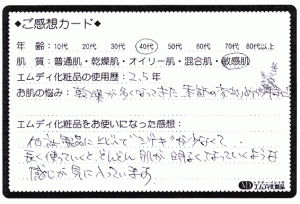 ◆ご感想カード◆
年 齢：10代 20代 30代 40代 50代 60代 70代 80代以上
肌 質：普通肌・乾燥肌・オイリー肌・混合肌・敏感肌
エムディ化粧品の使用歴：2.5年
お肌の悩み：乾燥が多くなってきた
エムディ化粧品をお使いになった感想：
他社製品にくらべて が少なくて、
長く使っていくと、どんどん肌が明るくなっていくような
感じが気に入っています
MD エムディ化粧品